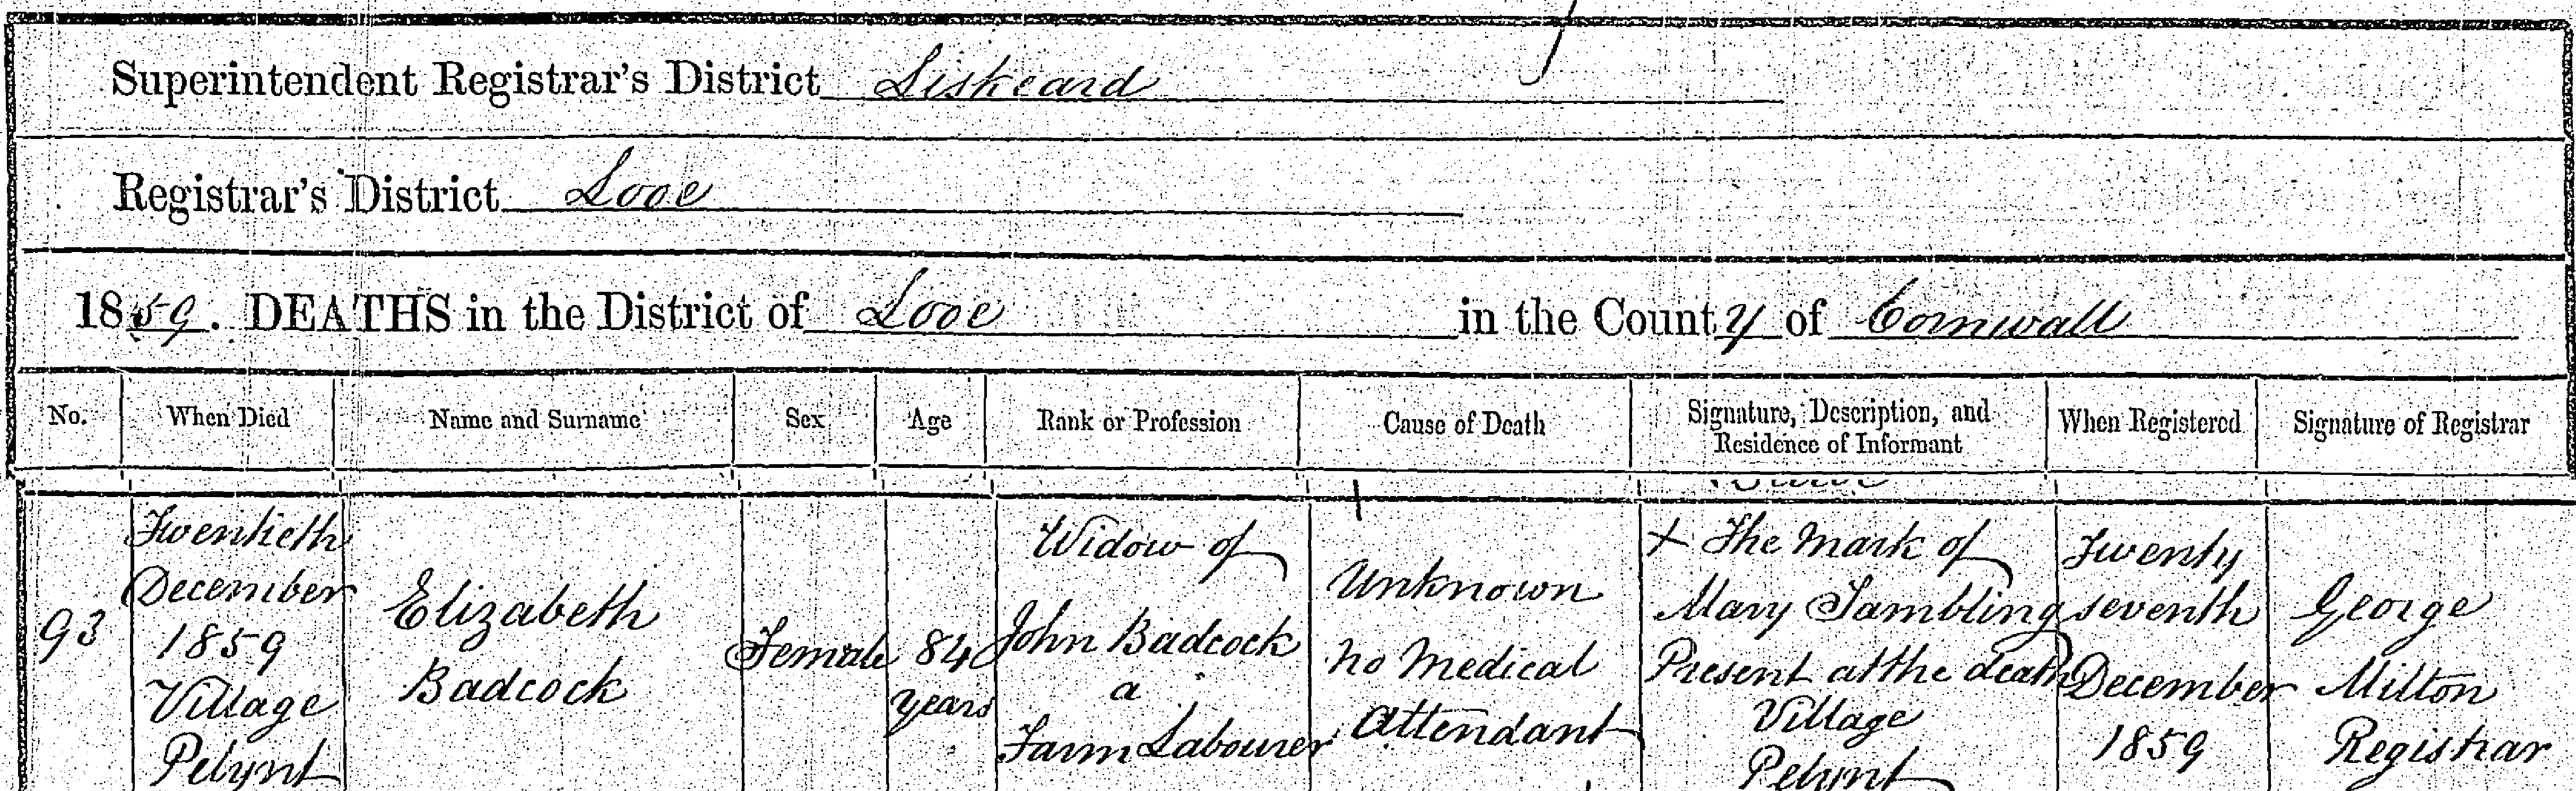 Superintendent Registrar's District Liskeard
Registrar's District Looe
1859. DEATHS in the District of Looe in the County of Cornwall
No. When Died Name and Surname Sex Age Rank or Profession Cause of Death Signature, Description, and Residence of Informant When Registered Signature of Registrar
93
Twentieth
December
1859
Village
Pelynt
Elizabeth
Badcock
Female
84
years
Widow of
John Badcock
a
Farm Labourer
Unknown
no Medical
Attendant
X The mark of
Mary Tambling
Present at the death
Village
Pelynt
Twenty
seventh
December
1859
George
Milton
Registrar